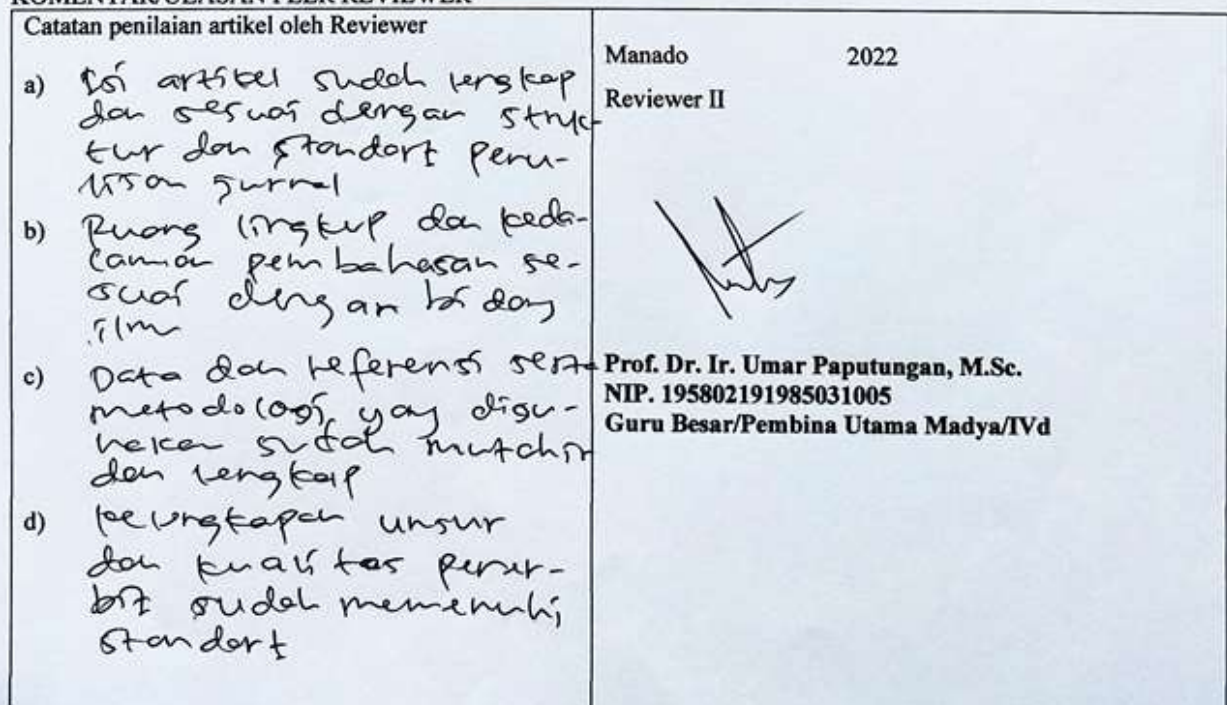 KOMENTAR/ULASAN PEER REVIEWER
Catatan penilaian artikel oleh Reviewer
a) Isi artikel sudah lengkap
dan sesuai dengan struk-
tur dan standort penu-
lisan jurnal
b) Ruang lingkup dan keda-
laman pembahasan se-
suai dengan bidang
ilmu
c) Data dan referensi serta
metodologi yang digu-
nakan sudah mutahir
dan lengkap
d) kelengkapan unsur
dan kualitas pener-
bit sudah memenuhi
standort
Manado 2022
Reviewer II
Prof. Dr. Ir. Umar Paputungan, M.Sc.
NIP. 195802191985031005
Guru Besar/Pembina Utama Madya/IVd